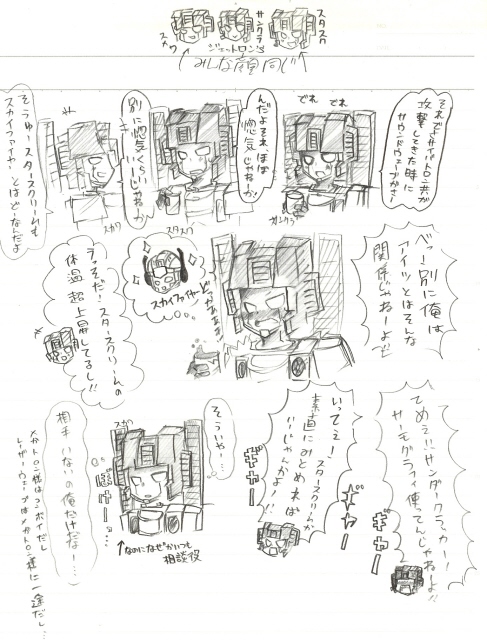 スカワ
サンクラ
スタスク
ジェットロン's
↑みんな顔同じ↑
それでサイバトロン共が
攻撃してきた時に
サウンドウェーブがさー
でれ でれ
サンクラ
んだよそれ、ほぼ
惚気じゃねーか!
スタスク
別に惚気くらい
いーじゃねぇか
スカワ
そうゆースタースクリームも
スカイファイヤーとはどーなんだよ
ベッ!別に俺は
アイツとはそんな
関係じゃねーよ!!
スカイファイヤー
うっそだ!スタースクリームの
体温超上昇してるし!!
てめえ!!サンダークラッカー!
サーモグラフィ使ってんじゃねぇよ!
ギャー
いってぇ!スタースクリームが
素直にみとめれば
いーじゃんかよ!!
ギャー
ギャー
そういやー…
スカワ
ぼけー…
↑なのになぜかいつも
相談役
相手いないの俺だけだなー…
メガトロン様はコンボイだし
レーザーウェーブはメガトロン様に一途だし…